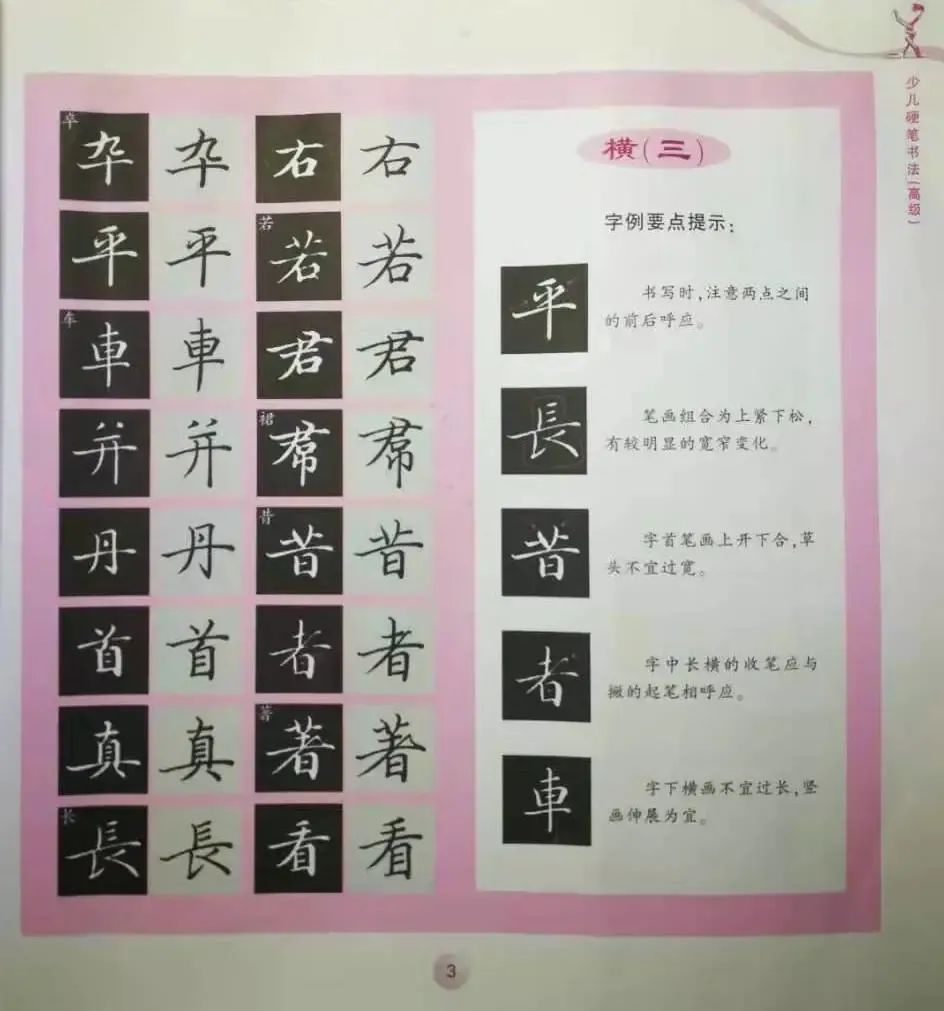 少儿硬笔书法(高级)
卒 卆 卆 右 右
平 平 若 若 若
车 車 車 君 君
并 并 裙 帬 帬
丹 丹 昔 昔 昔
首 首 者 者
真 真 著 著 著
长 長 長 看 看
横(三)
字例要点提示:
平
书写时,注意两点之间
的前后呼应。
長
笔画组合为上紧下松,
有较明显的宽窄变化。
昔
字首笔画上开下合,草
头不宜过宽。
者
字中长横的收笔应与
撇的起笔相呼应。
車
字下横画不宜过长,竖
画伸展为宜。
3